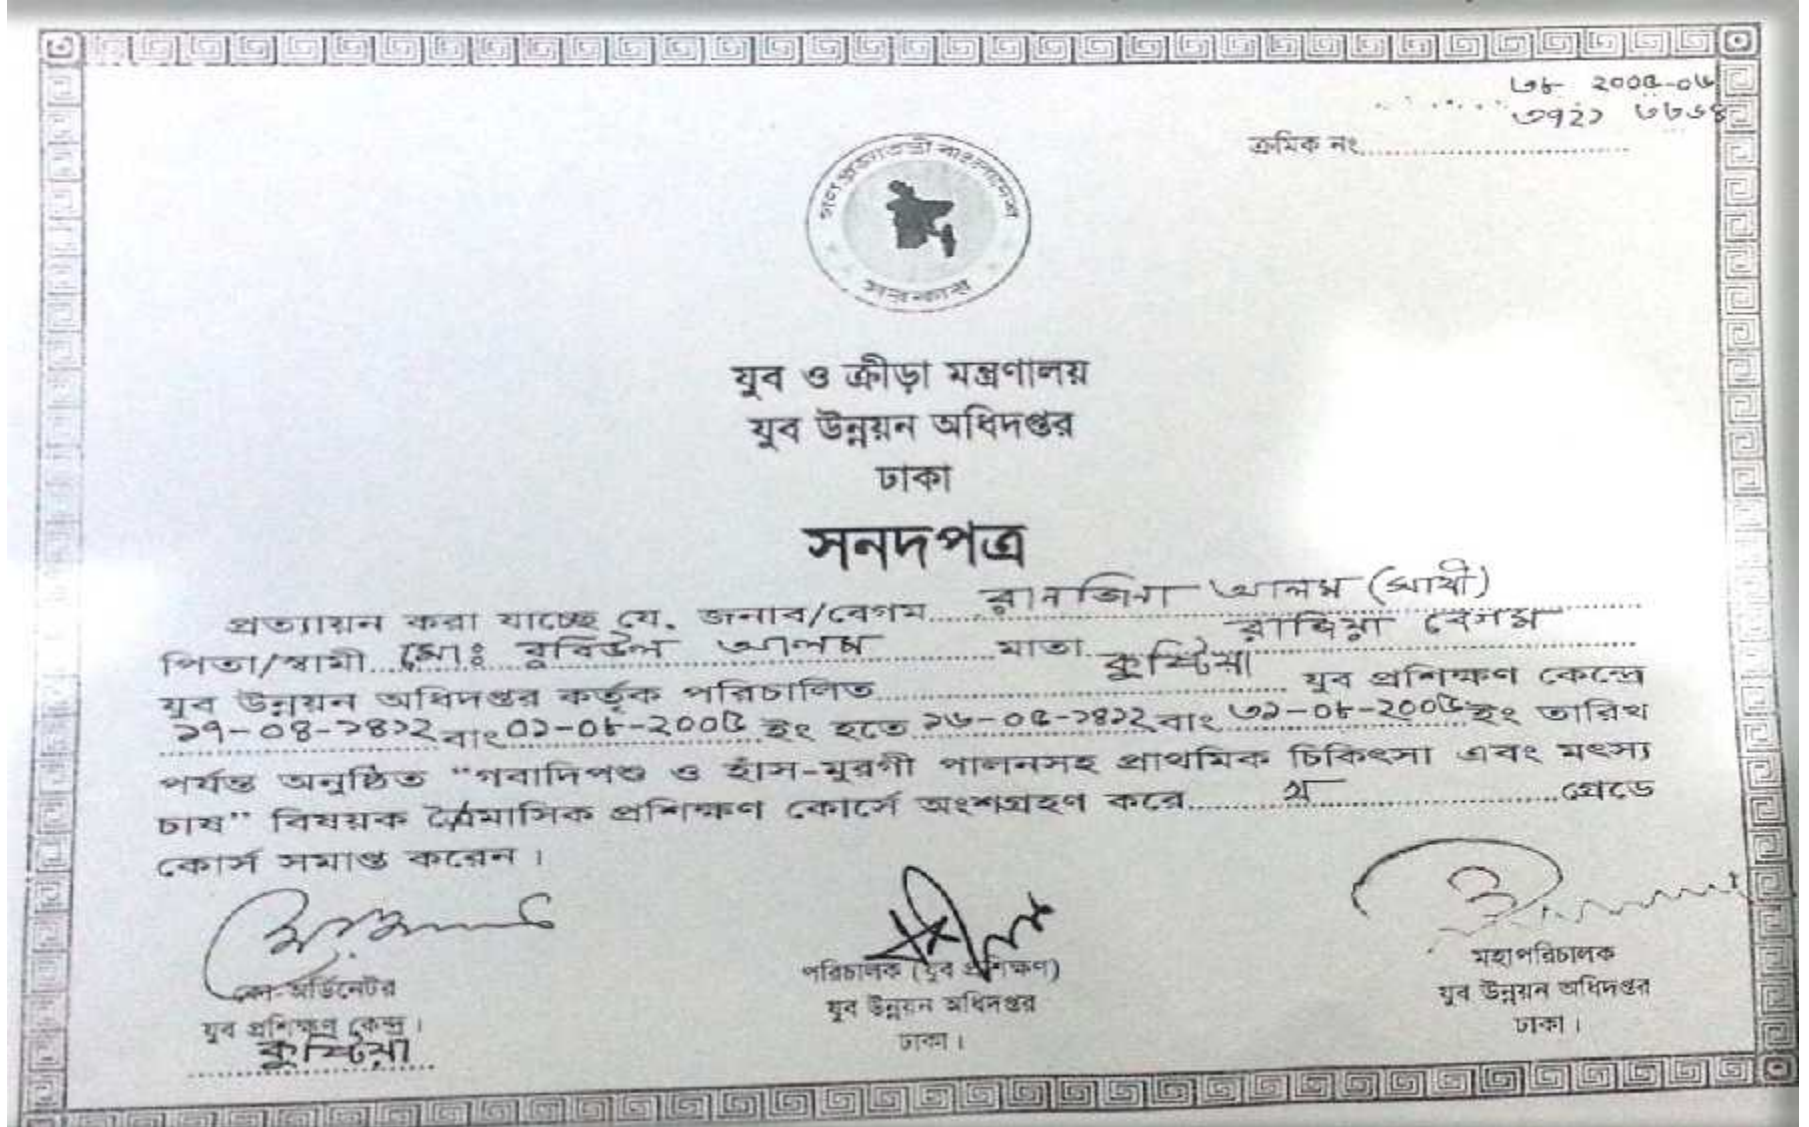 ৩৮ ২০০৫-০৬
৩৭২১ ৬৮৬৪
ক্রমিক নং
গণপ্রজাতন্ত্রী বাংলাদেশ
সরকার
যুব ও ক্রীড়া মন্ত্রণালয়
যুব উন্নয়ন অধিদপ্তর
ঢাকা
সনদপত্র
প্রত্যায়ন করা যাচ্ছে যে, জনাব/বেগম রানজিনা আলম (সাথী)
পিতা/স্বামী মোঃ রবিউল আলম মাতা রাজিয়া বেগম
যুব উন্নয়ন অধিদপ্তর কর্তৃক পরিচালিত কুষ্টিয়া যুব প্রশিক্ষণ কেন্দ্রে
১৭-০৪-১৪১২ বাং ০১-০৮-২০০৫ ইং হতে ১৬-০৫-১৪১২ বাং ৩১-০৮-২০০৫ ইং তারিখ
পর্যন্ত অনুষ্ঠিত "গবাদিপশু ও হাঁস-মুরগী পালনসহ প্রাথমিক চিকিৎসা এবং মৎস্য
চাষ" বিষয়ক মাসিক প্রশিক্ষণ কোর্সে অংশগ্রহণ করে গ্রেডে
কোর্স সমাপ্ত করেন।
কো-অর্ডিনেটর
যুব প্রশিক্ষণ কেন্দ্র।
কুষ্টিয়া
পরিচালক (যুব প্রশিক্ষণ)
যুব উন্নয়ন অধিদপ্তর
ঢাকা।
মহাপরিচালক
যুব উন্নয়ন অধিদপ্তর
ঢাকা।